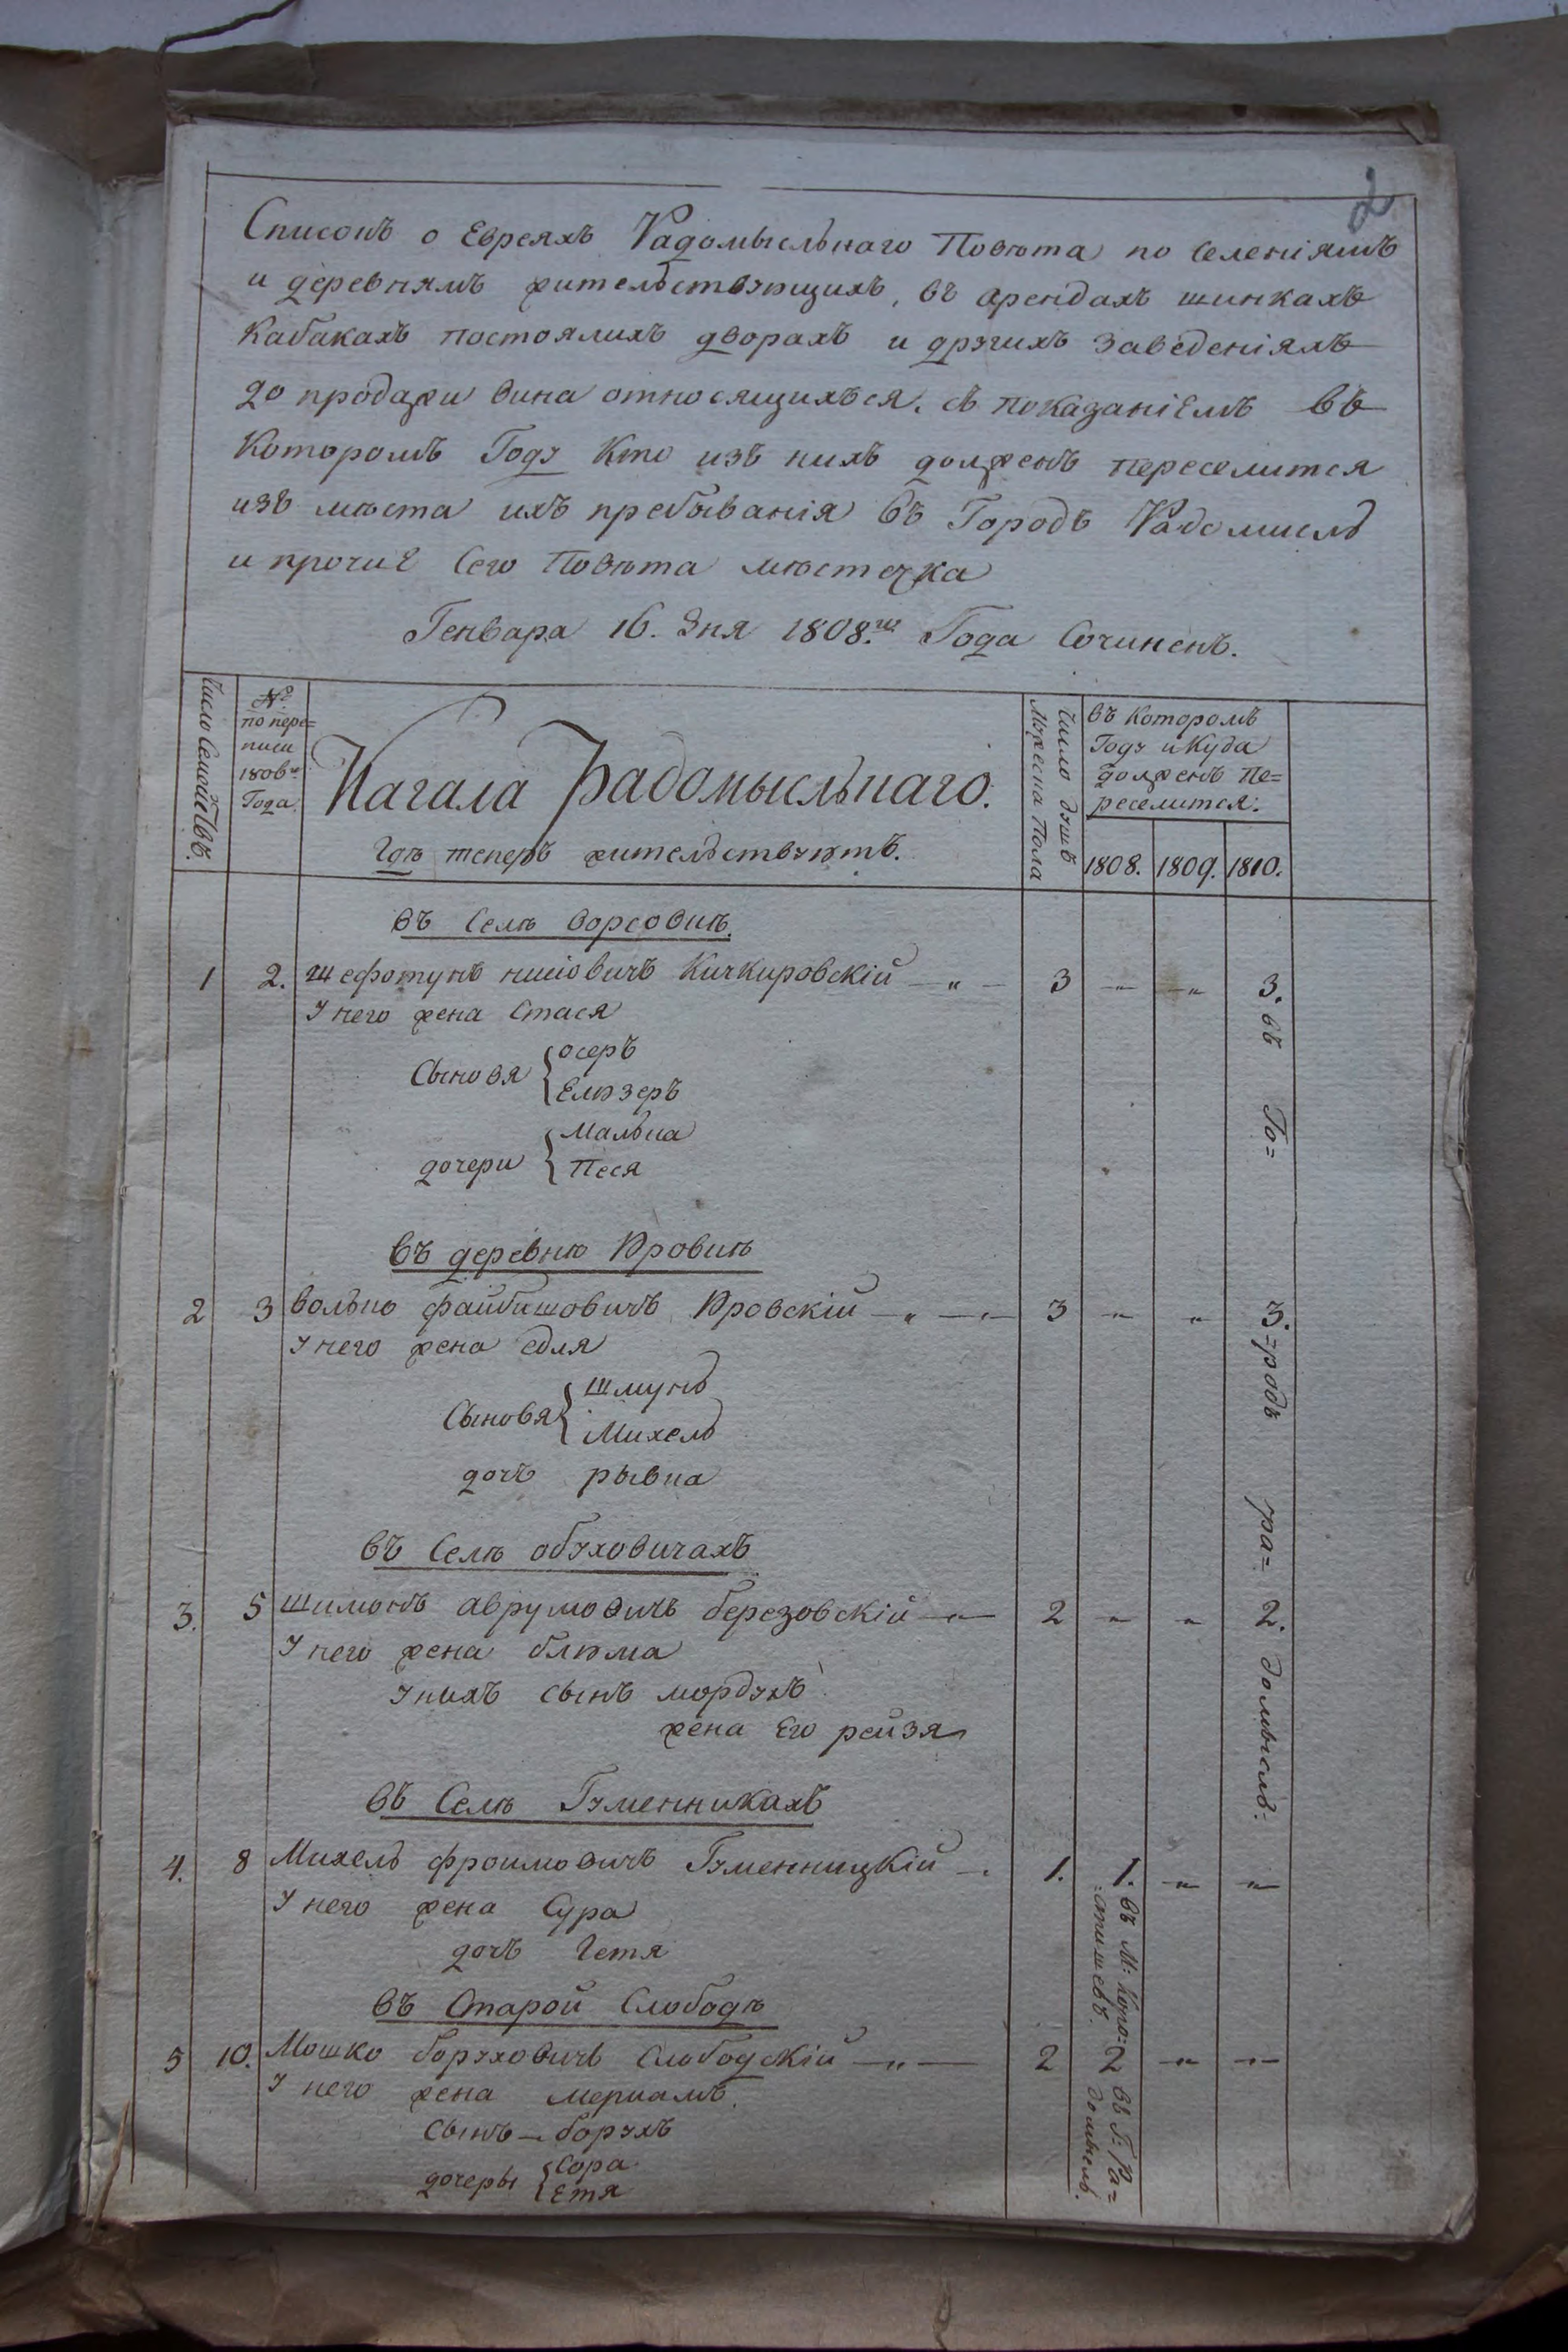 2
Списокъ о Евреяхъ Радомысльнаго Повѣта по Селеніямъ
и деревнямъ жительствующихъ, въ арендахъ шинкахъ
Кабакахъ постоялихъ дворахъ и другихъ заведеніяхъ
до продажи вина относящихъся. съ показаніемъ въ
Которомъ Году Кто изъ нихъ долженъ переселится
изъ мѣста ихъ пребыванія въ Городъ Радомисль
и прочие Сего Повѣта мѣстечка
Генвара 16. дня 1808.го Года Сочиненъ.
Число Семействъ.
№.
по пере=
писи
1806го
Года.
Кагала Радомысльнаго.
Гдѣ теперъ жительствуютъ.
Число душъ
Мужеска Пола
въ Которомъ
Году и Куда
долженъ пе=
реселится.
1808. 1809. 1810.
въ Селѣ Ворсовкѣ.
1 2. Кичкировскій — „ — 3 — „ — „ 3.
У него жена Стася
Сыновя { осеръ
Елюзеръ
дочери { Малька
Песя
въ деревню Юровкѣ
2 3 Волько файбишовичъ Юровскій — „ — 3 „ „ 3.
У него жена Едля
Сыновя { Шмунь
Михель
дочъ рывка
въ Селѣ обуховичахъ
3. 5 Шимонъ аврумовичъ березовскій — „ — 2 „ „ 2.
У него жена блюма
У нихъ сынъ мордухъ
жена Его рейзя
въ Селѣ Гуменникахъ
4. 8 Михель фроимовичъ Гуменницкій — . 1. 1. „ „
У него жена Сура
дочъ Гетя
въ Старой Слободѣ
5 10. Мошко боруховичъ Слободскій — „ — 2 2 „ „
У него жена мериамъ.
Сынъ — борухъ
дочеры { Сора
Етя
въ Го=
=родъ
ра=
домысль.
въ М: Коро=
=стишевъ.
въ Г: Ра=
домысль.